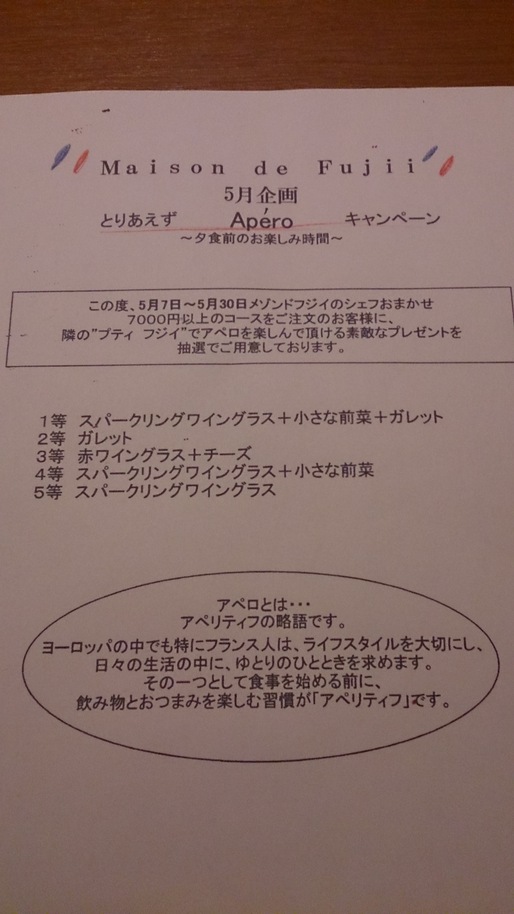 Maison de Fujii
5月企画
とりあえず Apéro キャンペーン
～夕食前のお楽しみ時間～
この度、5月7日～5月30日メゾンドフジイのシェフおまかせ
7000円以上のコースをご注文のお客様に、
隣の"プティ フジイ"でアペロを楽しんで頂ける素敵なプレゼントを
抽選でご用意しております。
1等 スパークリングワイングラス＋小さな前菜＋ガレット
2等 ガレット
3等 赤ワイングラス＋チーズ
4等 スパークリングワイングラス＋小さな前菜
5等 スパークリングワイングラス
アペロとは・・・
アペリティフの略語です。
ヨーロッパの中でも特にフランス人は、ライフスタイルを大切にし、
日々の生活の中に、ゆとりのひとときを求めます。
その一つとして食事を始める前に、
飲み物とおつまみを楽しむ習慣が「アペリティフ」です。